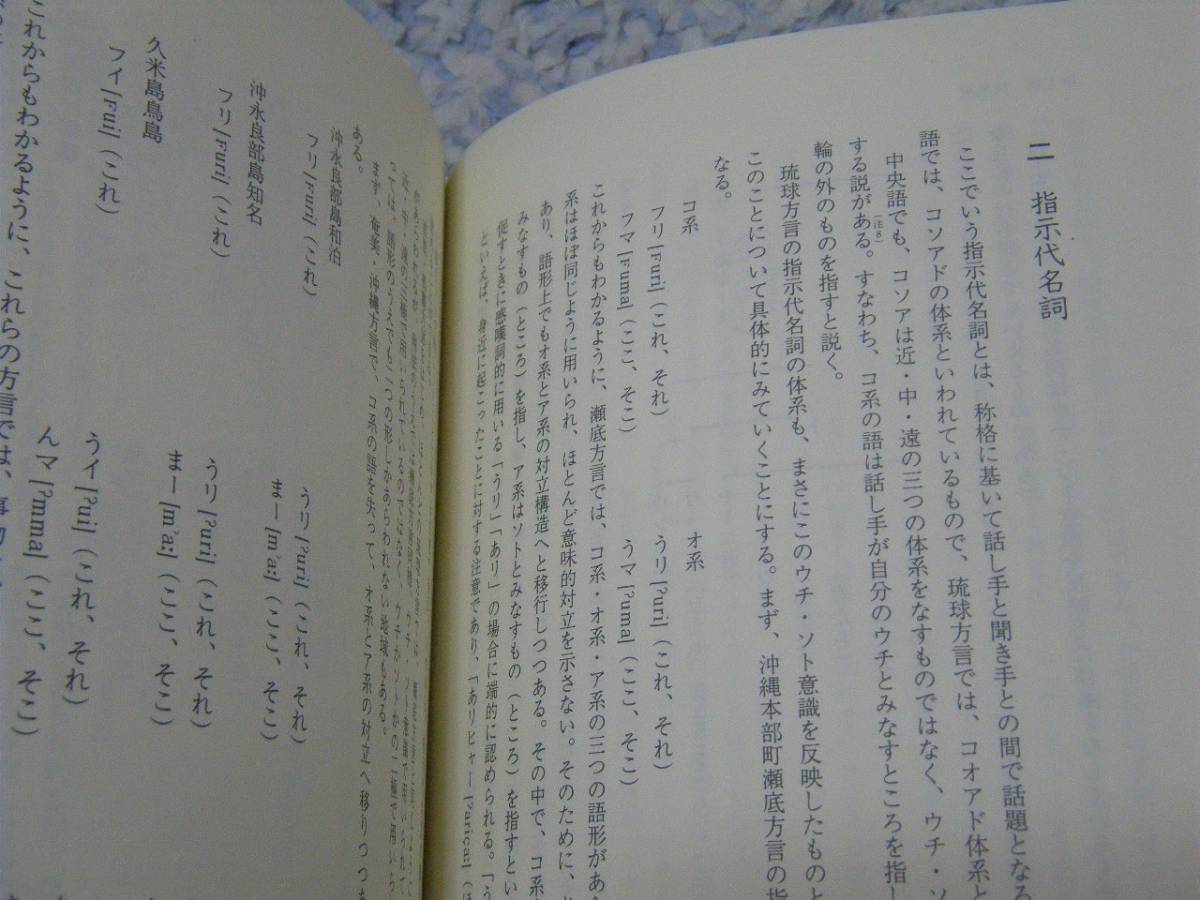 二　指示代名詞
ここでいう指示代名詞とは、称格に基いて話し手と聞き手との間で話題となる
語では、コソアドの体系といわれているもので、琉球方言では、コオアド体系と
中央語でも、コソアは近・中・遠の三つの体系をなすものではなく、ウチ・ソ
する説がある。(注8)すなわち、コ系の語は話し手が自分のウチとみなすところを指し
輪の外のものを指すと説く。
琉球方言の指示代名詞の体系も、まさにこのウチ・ソト意識を反映したものと
このことについて具体的にみていくことにする。まず、沖縄本部町瀬底方言の指
なる。
コ系　オ系
フリ[Furi]（これ、それ）　うリ[ʔuri]（これ、それ）
フマ[Fuma]（ここ、そこ）　うマ[ʔuma]（ここ、そこ）
これからもわかるように、瀬底方言では、コ系・オ系・ア系の三つの語形があ
系はほぼ同じように用いられ、ほとんど意味的対立を示さない。そのために、
あり、語形上でもオ系とア系の対立構造へと移行しつつある。その中で、コ系
みなすもの（ところ）を指し、ア系はソトとみなすもの（ところ）を指すとい
促すときに感嘆詞的に用いる「うリ」「あリ」の場合に端的に認められる。「う
といえば、身近に起こったことに対する注意であり、「あリヒャー[ʔariça:]（ほ
っては、語形のうえでも二つの形しかあらわれない地域もある。
まず、奄美・沖縄方言で、コ系の語を失って、オ系とア系の対立へ移りつつあ
ある。
沖永良部島和泊
フリ[Furi]（これ）　うリ[ʔuri]（これ、それ）
まー[mʔa:]（ここ、そこ）
沖永良部島知名
フリ[Furi]（これ）　うリ[ʔuri]（これ、それ）
まー[mʔa:]（ここ、そこ）
久米島鳥島
フイ[Fui]（これ）　うイ[ʔui]（これ、それ）
んマ[ʔmma]（ここ、そこ）
これからもわかるように、これらの方言では、